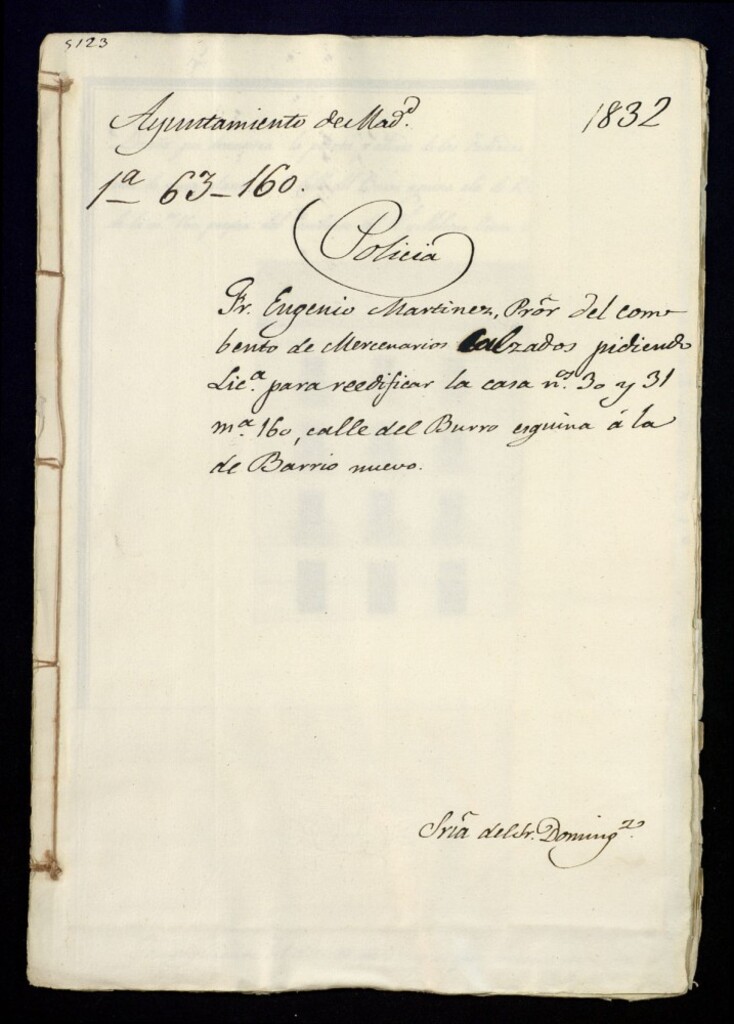 5123
Ayuntamiento de Mad.d 1832
1.a 63-160.
Policia
Fr. Eugenio Martinez, Pror del com-
bento de Mercenarios Calzados pidiendo
Lic.a para reedificar la casa n.os 30 y 31
m.a 160, calle del Burro esquina á la
de Barrio nuevo.
Sria del Sr. Doming.z